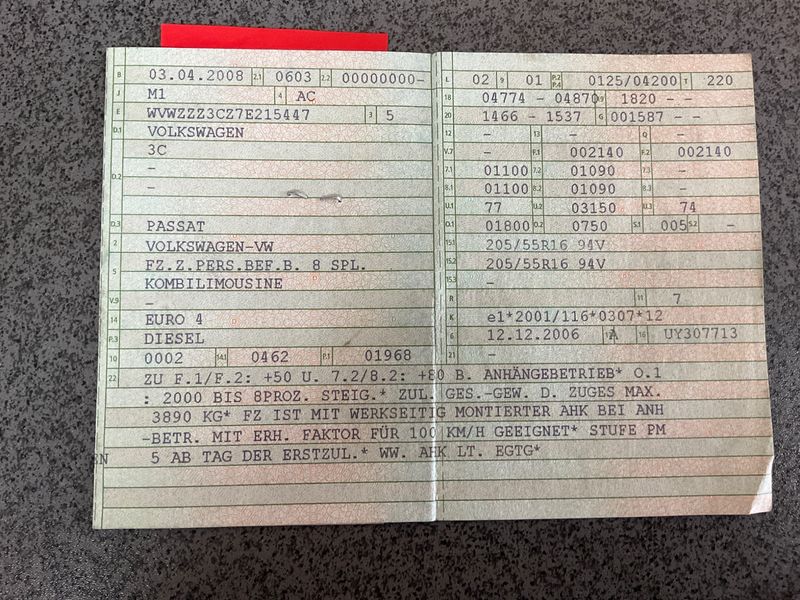 B 03.04.2008 2.1 0603 2.2 00000000-
J M1 4 AC
E WVWZZZ3CZ7E215447 3 5
D.1 VOLKSWAGEN
3C
-
D.2 -
D.3 PASSAT
2 VOLKSWAGEN-VW
5 FZ.Z.PERS.BEF.B. 8 SPL.
KOMBILIMOUSINE
V.9 -
14 EURO 4
P.3 DIESEL
10 0002 14.1 0462 P.1 01968
L 02 9 01 P.2 P.4 0125/04200 T 220
18 04774 - 04870 19 1820 - -
20 1466 - 1537 G 001587 - -
12 - 13 - Q -
V.7 - F.1 002140 F.2 002140
7.1 01100 7.2 01090 7.3 -
8.1 01100 8.2 01090 8.3 -
U.1 77 U.2 03150 U.3 74
O.1 01800 O.2 0750 S.1 005 S.2 -
15.1 205/55R16 94V
15.2 205/55R16 94V
15.3 -
R 11 7
K e1*2001/116*0307*12
6 12.12.2006 17 A 16 UY307713
21 -
22 ZU F.1/F.2: +50 U. 7.2/8.2: +80 B. ANHÄNGEBETRIEB* O.1
: 2000 BIS 8PROZ. STEIG.* ZUL. GES.-GEW. D. ZUGES MAX.
3890 KG* FZ IST MIT WERKSEITIG MONTIERTER AHK BEI ANH
-BETR. MIT ERH. FAKTOR FÜR 100 KM/H GEEIGNET* STUFE PM
5 AB TAG DER ERSTZUL.* WW. AHK LT. EGTG*